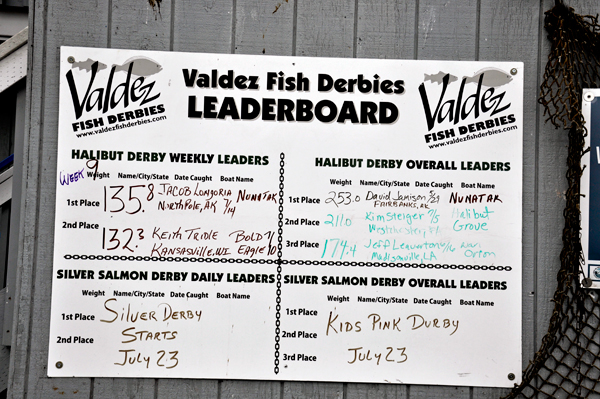 Valdez
FISH DERBIES
www.valdezfishderbies.com
Valdez Fish Derbies
LEADERBOARD
Valdez
FISH DERBIES
www.valdezfishderbies.com
HALIBUT DERBY WEEKLY LEADERS
WEEK 9
Weight Name/City/State Date Caught Boat Name
1st Place 135.8 JACOB LONGORIA NUNATAK
NORTH POLE, AK 7/14
2nd Place 132.3 KEITH TRIDLE BOLD 7/
KANSASVILLE, WI EAGLE 10
HALIBUT DERBY OVERALL LEADERS
Weight Name/City/State Date Caught Boat Name
1st Place 253.0 David Jamison NUNATAK
FAIRBANKS, AK
2nd Place 211.0 Kim Steiger 7/5 Halibut
Grove
3rd Place 174.4 Jeff
LA Orion
SILVER SALMON DERBY DAILY LEADERS
Weight Name/City/State Date Caught Boat Name
1st Place SILVER DERBY
2nd Place STARTS
JULY 23
SILVER SALMON DERBY OVERALL LEADERS
Weight Name/City/State Date Caught Boat Name
1st Place
2nd Place KIDS PINK DURBY
3rd Place JULY 23